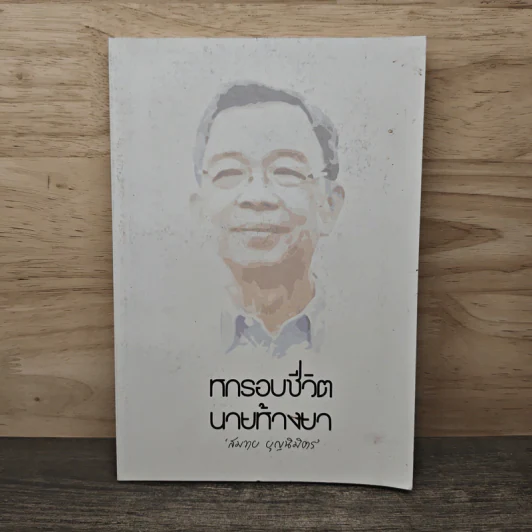 หกรอบชีวิต
นายห้างยา
บุญนิมิตร